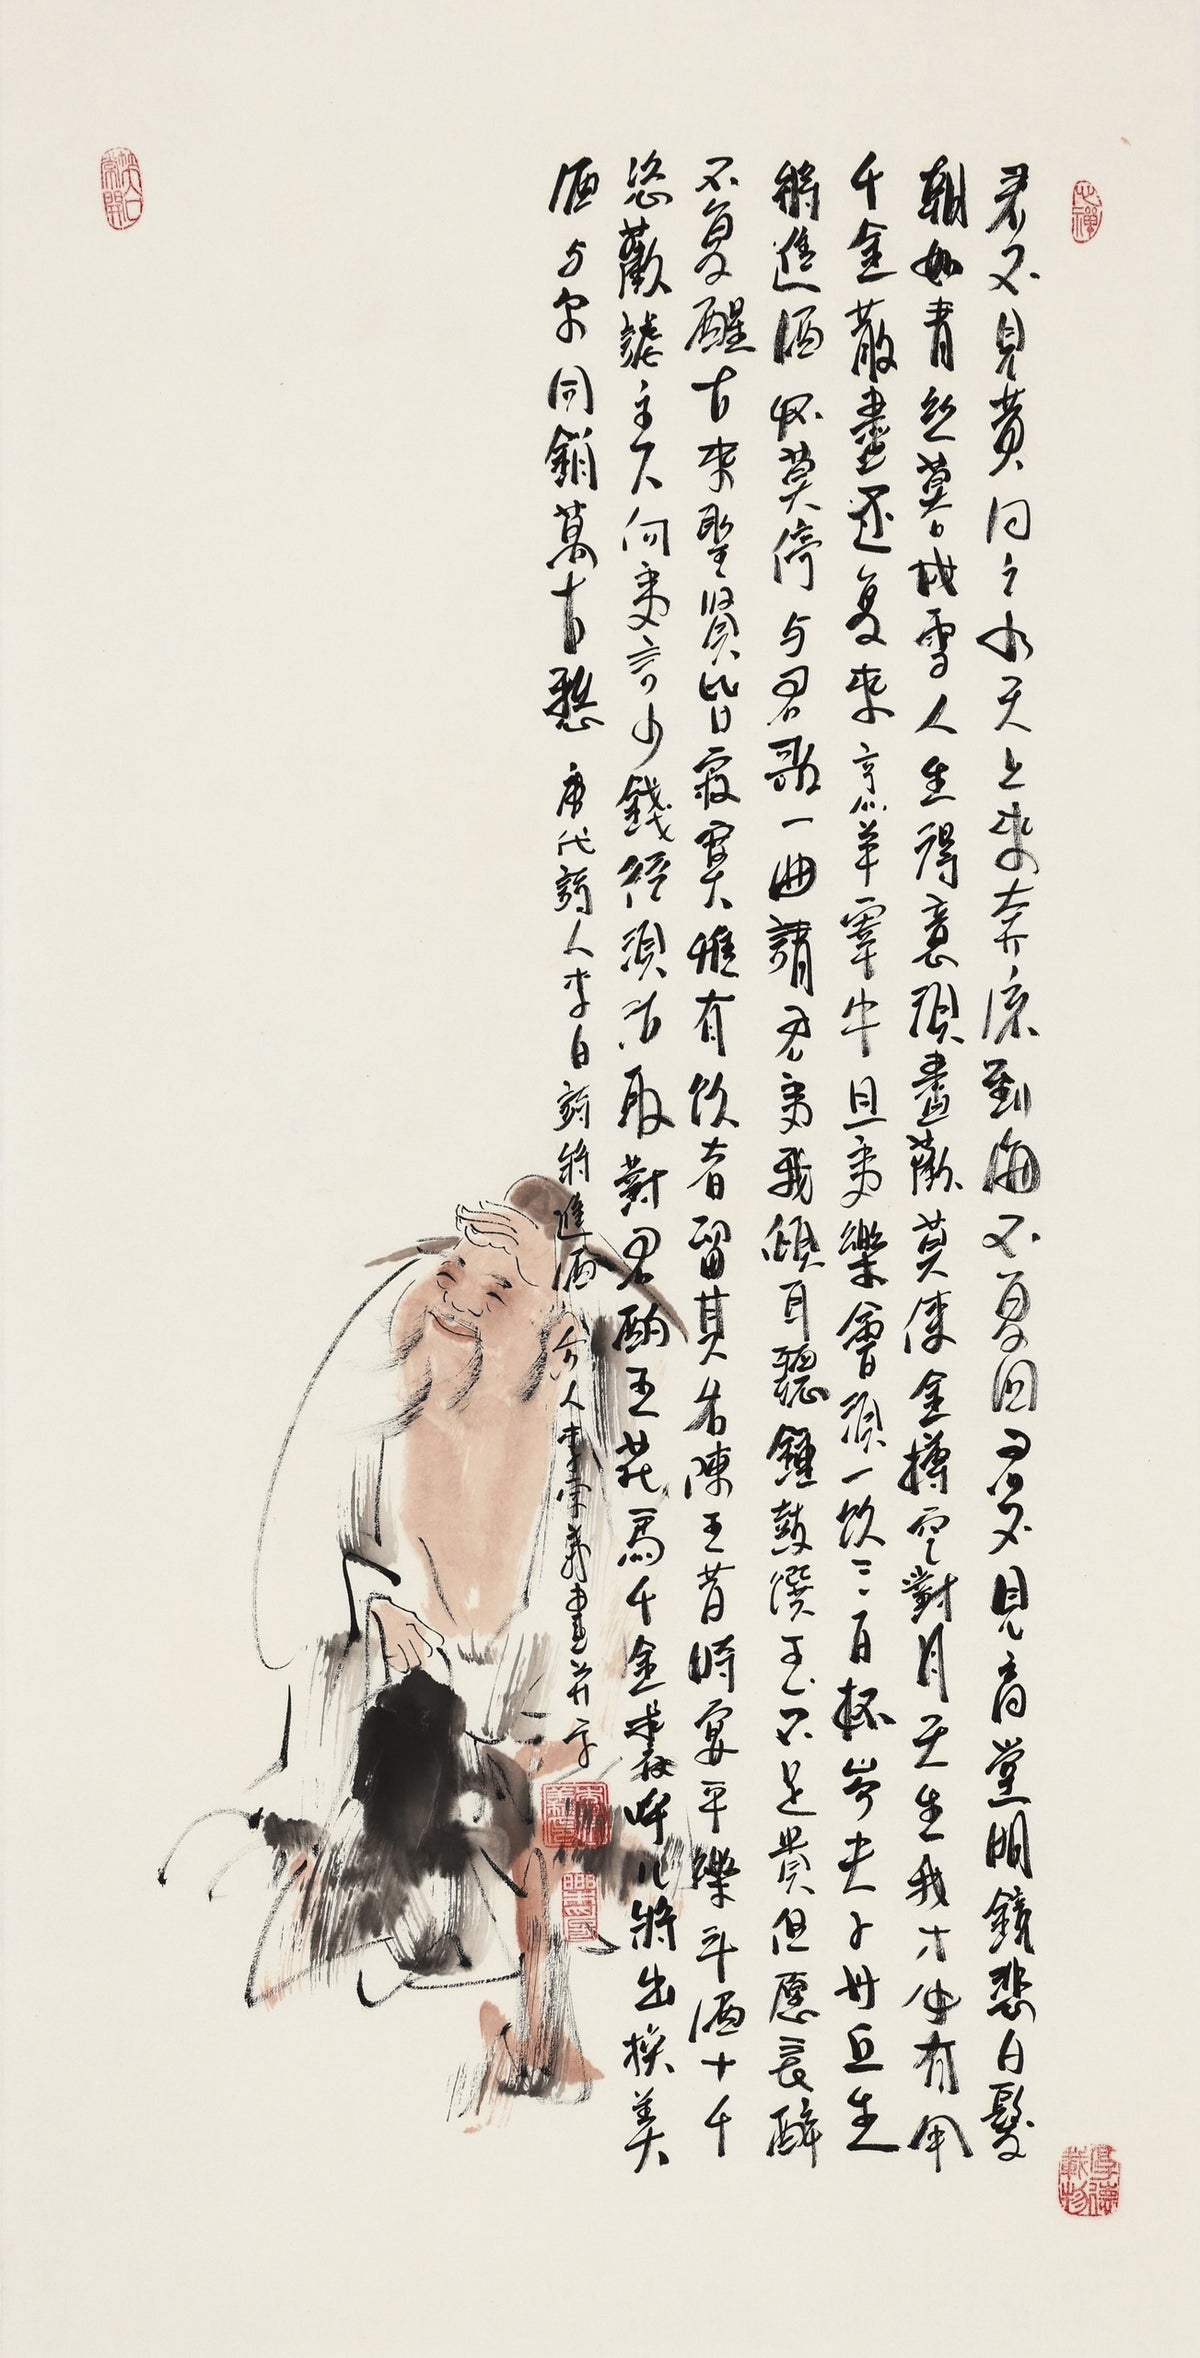 君不見黄河之水天上來奔流到海不复回君不見高堂明鏡悲白髮
朝如青丝暮成雪人生得意須盡歡莫使金樽空對月天生我才必有用
千金散盡还复來烹羊宰牛且为樂會須一饮三百杯岑夫子丹丘生
將進酒杯莫停与君歌一曲請君为我傾耳聽鍾鼓饌玉不足貴但愿長醉
不复醒古來聖賢皆寂寞惟有饮者留其名陳王昔時宴平樂斗酒十千
恣歡謔主人何为言少錢徑須沽取對君酌五花馬千金裘呼儿將出換美
酒与尔同銷萬古愁 唐代詩人李白詩將進酒 人李宗義畫并字
笑口常開
厚德載物